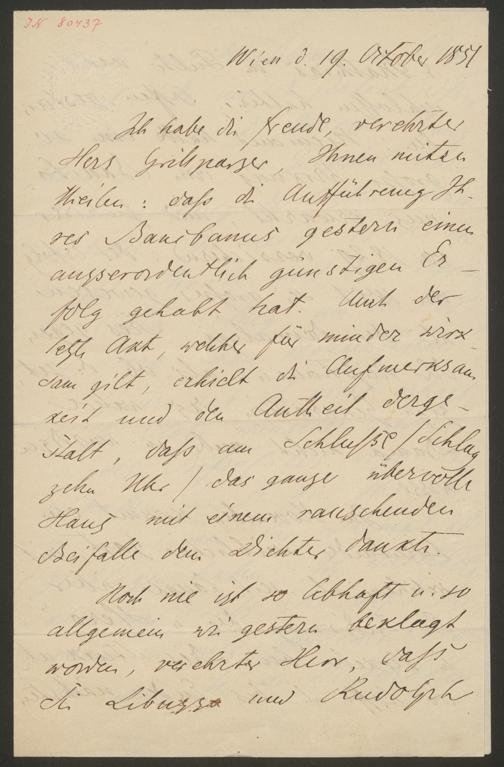 IN 80437
Wien d. 19. October 1851
Ich habe die Freude, verehrter
Herr Grillparzer, Ihnen mitzu
theilen: daß die Aufführung Ih-
res Bancbanus gestern einen
ausserordentlich günstigen Er-
folg gehabt hat. Auch der
letzte Akt, welcher für minder wirk
sam gilt, erhielt die Aufmerksam
keit und den Antheil derge-
stalt, daß am Schluße /Schlag
zehn Uhr/ das ganze übervolle
Haus mit einem rauschenden
Beifalle dem Dichter dankte.
Noch nie ist so lebhaft u. so
allgemein wie gestern beklagt
worden, verehrter Herr, daß
die Libussa und Rudolph